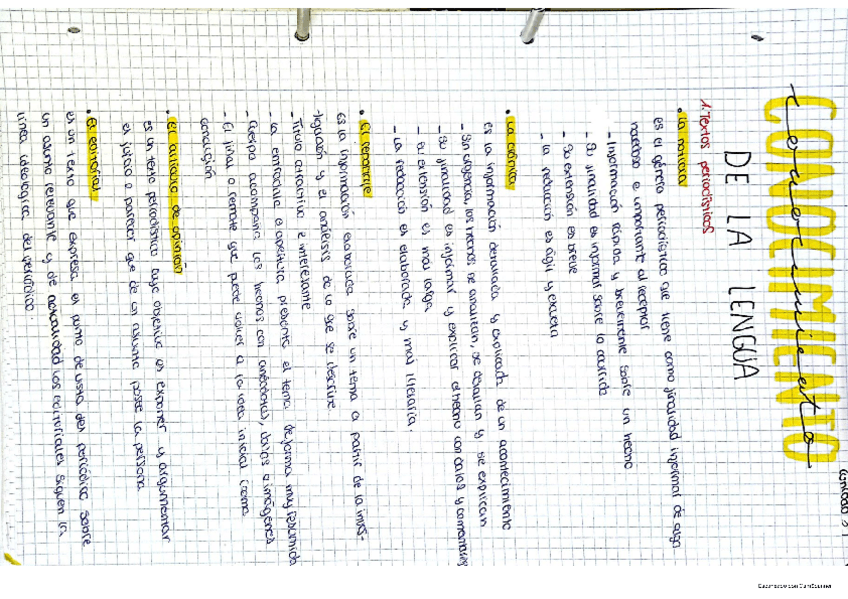 CONOCIMIENTO
conocimiento
DE LA LENGUA
1. Textos periodísticos
• La noticia
es el género periodístico que tiene como finalidad informar de algo
novedoso e importante al receptor
- Información rápida y brevemente sobre un hecho
- Su finalidad es informar sobre lo ocurrido
- Su extensión es breve
- la redacción es ágil y escueta
• La crónica
es la información detallada y explicada de un acontecimiento
- Sin urgencia, los hechos se analizan, se detallan y se explican
- Su finalidad es informar y explicar el hecho con datos y comentarios
- su extensión es más larga
- La redacción es elaborada y más literaria.
• El reportaje
Es la información elaborada sobre un tema a partir de la inves-
tigación y el análisis de lo que se describe
- Título atractivo e interesante
- La entradilla o apertura presenta el tema de forma muy resumida
- Cuerpo acompaña los hechos con anécdotas, datos e imágenes
- El final o remate que puede volver a la idea inicial
conclusión
• El artículo de opinión
es un texto periodístico cuyo objetivo es exponer y argumentar
el juicio o parecer que de un asunto posee la persona
• El editorial
es un texto que expresa el punto de vista del periódico sobre
un asunto relevante y de actualidad los editoriales siguen la
línea ideológica del periódico.
Escaneado con CamScanner